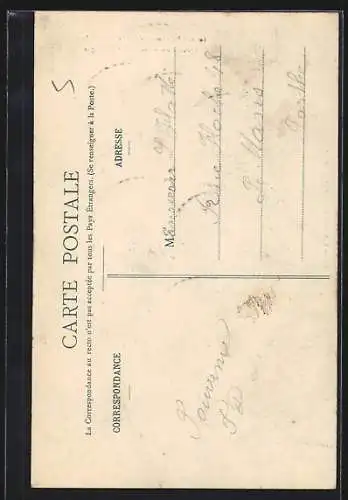 CARTE POSTALE
La Correspondance au recto n'est pas acceptée par tous les Pays Étrangers. (Se renseigner à la Poste.)
CORRESPONDANCE
ADRESSE
M
Rue 48
Le Mans
Sarthe
Souvenir